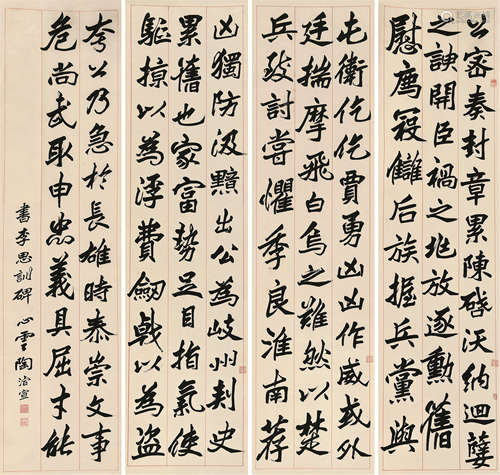 公密奏封章累陳啓沃納迴孽
之諛開臣禍之兆放逐勳舊
慰薦寇讎后族握兵黨與
屯衛仡仡賈勇凶凶作威或外
廷揣摩飛白烏之難然以楚
兵致討嘗懼季良淮南荐
凶獨防汲黯出公為岐州刺史
累舊也家富勢足目指氣使
驅掠以為浮費劒戟以為盜
夸公乃急於長雄時泰崇文事
危尚武取申忠義具屈才能
書李思訓碑 心雲陶濬宣